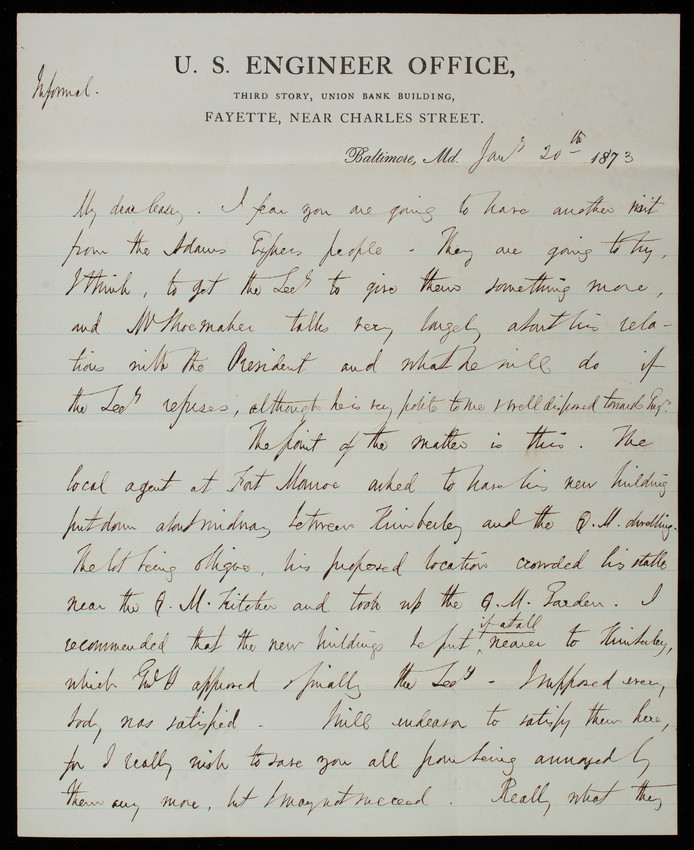 U. S. ENGINEER OFFICE,
Informal.
THIRD STORY, UNION BANK BUILDING,
FAYETTE, NEAR CHARLES STREET.
Baltimore, Md. Jany 20th 1873
My dear Casey. I fear you are going to have another visit
from the Adams Express people - They are going to try,
I think, to get the Secy to give them something more,
and Mr Shoemaker talks very largely about his rela-
tions with the President and what he will do if
the Secy refuses, although he is very polite to me & well disposed towards
The point of the matter is this. The
local agent at Fort Monroe asked to have his new building
put down about midway between Kimberley and the Q. M. dwelling.
The lot being oblique, his proposed location crowded his stable
near the Q. M. Kitchen and took up the Q. M. Garden. I
recommended that the new buildings be put, if at all nearer to Kimberley,
which approved & finally the Secy - I supposed every
body was satisfied - Will endeavor to satisfy them here,
for I really wish to save you all from being annoyed by
them any more, but I may not succeed. Really what they